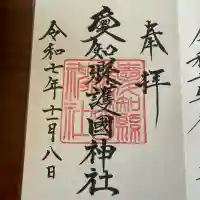 奉拝
愛知縣護國神社
愛知縣
護國神社
令和七年十一月八日